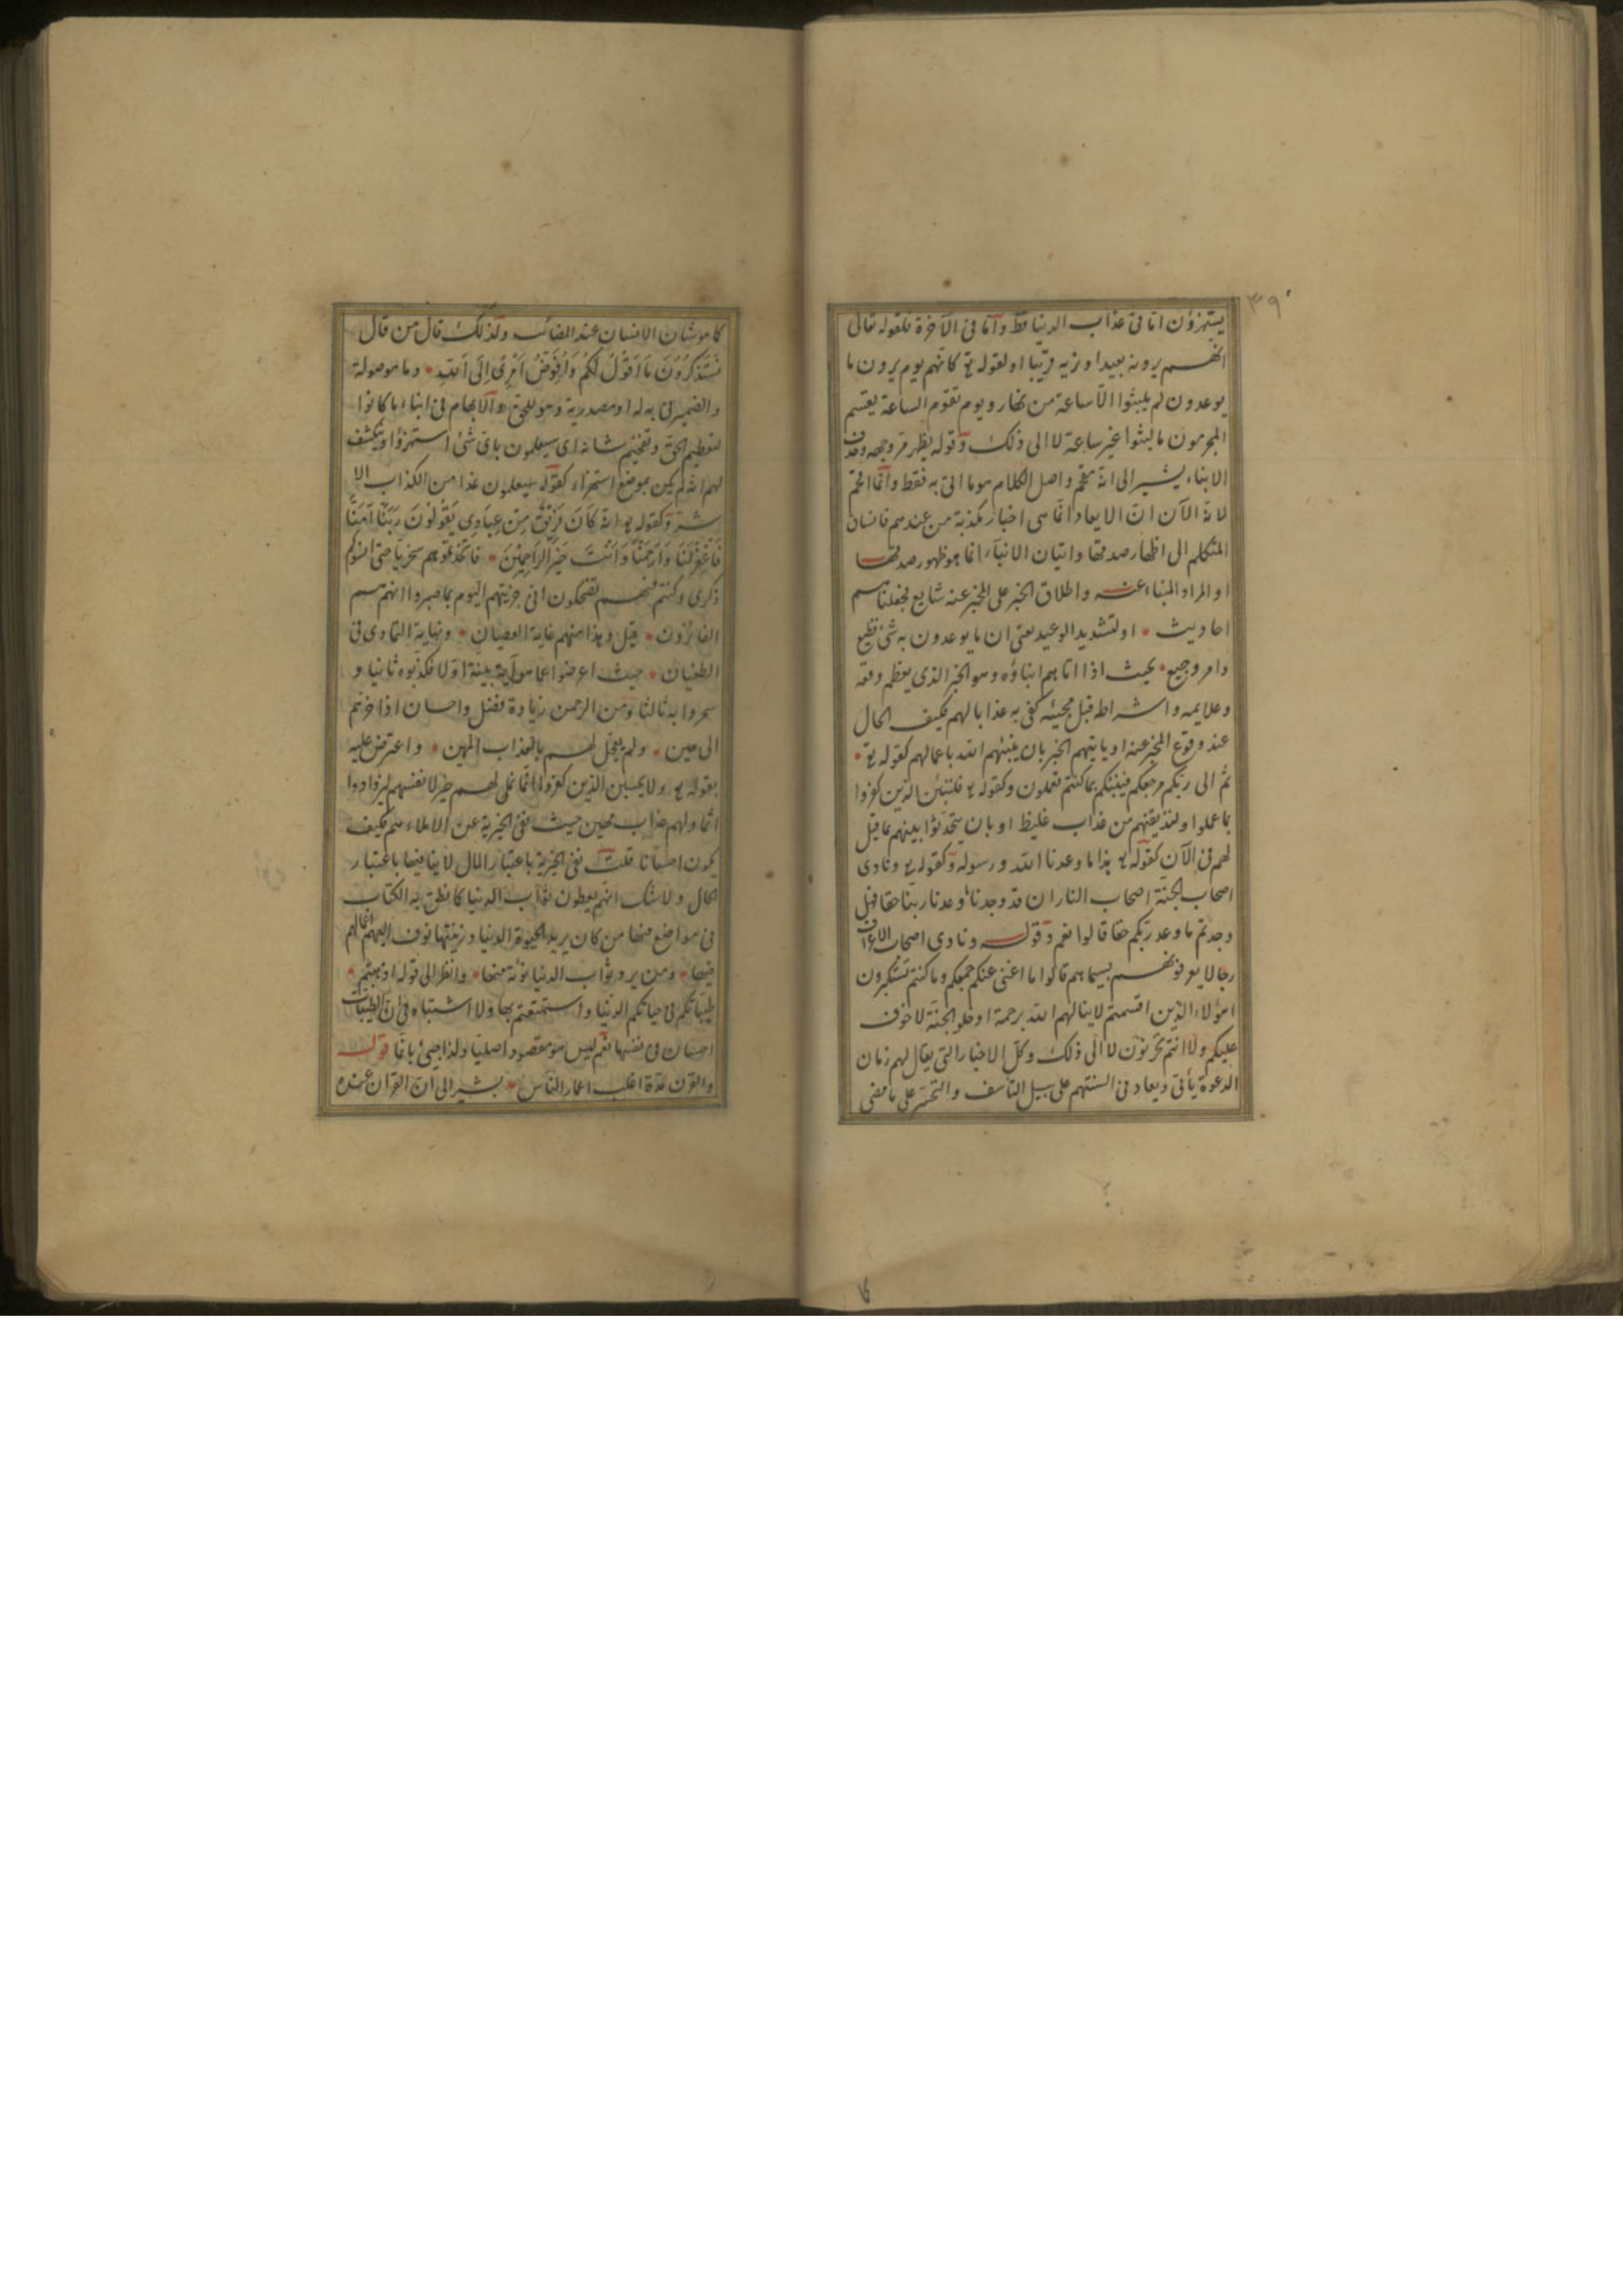 ٣٩
يستهزؤن اما في عذاب الدنيا فقط واما في الآخرة فلقوله تعالى
انهم يرونه بعيدا ونريه قريبا اولقوله تع كانهم يوم يرون ما
يوعدون لم يلبثوا الا ساعة من نهار ويوم تقوم الساعة يقسم
المجرمون ما لبثوا غير ساعة لا الى ذلك وقوله يظهر مر وجهه وفى
الانباء يشير الى انه مقحم واصل الكلام هو ما اتى به فقط وانما اقحم
لانه الآن ان الايعاد انما هى اخبار مكذبة من عندهم فانساق
المتكلم الى اظهار صدقها واتيان الانباء انما هو ظهور صدقها
او المراد المنباء عنه واطلاق الخبر على المخبر عنه شايع فجعلناهم
احاديث • او لتشديد الوعيد يعنى ان ما يوعدون به شئ فظيع
وامر وجيع • بحيث اذا اتاهم انباؤه وهو الخبر الذى يعظم وقعه
وعلايمه واشراطه قبل مجيئه كفى به عذابا لهم فكيف الحال
عند وقوع المخبر عنه او ياتيهم الخبر بان ينبئهم الله باعمالهم كقوله تع •
ثم الى ربكم مرجعكم فينبئكم بما كنتم تعملون وكقوله تع فلننبئن الذين كفروا
بما عملوا ولنذيقنهم من عذاب غليظ او بان يتحدثوا بينهم بما قيل
لهم فى الآن كقوله تع هذا ما وعدنا الله ورسوله وكقوله تع ونادى
اصحاب الجنة اصحاب النار ان قد وجدنا ما وعدنا ربنا حقا فهل
وجدتم ما وعد ربكم حقا قالوا نعم وقوله ونادى اصحاب الاعراف
رجالا يعرفونهم بسيماهم قالوا ما اغنى عنكم جمعكم وما كنتم تستكبرون
اهؤلاء الذين اقسمتم لا ينالهم الله برحمة ادخلوا الجنة لا خوف
عليكم ولا انتم تحزنون لا الى ذلك وكل الاخبار التى يقال لهم زمان
الدعوة يأتى ويعاد فى السنتهم على سبيل التأسف والتحسر على ما مضى
كما هو شان الانسان عند المصائب ولذلك قال من قال
فَسَتَذْكُرُونَ مَا اَقُولُ لَكُمْ وَاُفَوِّضُ اَمْرِى اِلَى اللهِ • وما موصولة
والضمير فى به له او مصدرية وهو للحق والابهام فى انباء ما كانوا
لتعظيم الحق وتفخيم شانه اى سيعلمون باى شئ استهزؤا وينكشف
لهم انه لم يكن بموضع استهزاء كقوله سيعلمون غدا من الكذاب الا
شر وكقوله تع انه كَانَ فَرِيقٌ مِنْ عِبَادِى يَقُولُونَ رَبَّنَا آمَنَّا
فَاغْفِرْ لَنَا وَارْحَمْنَا وَاَنْتَ خَيْرُ الرَّاحِمِينَ • فاتخذتموهم سخريا حتى انسوكم
ذكرى وكنتم منهم تضحكون انى جزيتهم اليوم بما صبروا انهم هم
الفائزون • قيل وهذا منهم غاية العصيان • ونهاية التمادى فى
الطغيان • حيث اعرضوا عما هو آية بينة اولا فكذبوه ثانيا و
سخروا به ثالثا ومن الرحمن زيادة فضل واحسان اذ اخرهم
الى حين • ولم يعجل لهم بالعذاب المهين • واعترض عليه
بقوله تع ولا يحسبن الذين كفروا انما نملى لهم خير لانفسهم ليزدادوا
اثما ولهم عذاب مهين حيث نفى الخيرية عن الاملاء لهم فكيف
يكون احسانا قلت نفى الخيرية باعتبار المال لا ينافيها باعتبار
الحال ولا شك انهم يعطون ثواب الدنيا كما نطق به الكتاب
فى مواضع منها من كان يريد الحيوة الدنيا وزينتها نوف اليهم اعمالهم
فيها • ومن يرد ثواب الدنيا نؤته منها • وانظر الى قوله اذهبتم •
طيباتكم فى حياتكم الدنيا واستمتعتم بها ولا اشتباه فى ان الطيبات
احسان فى نفسها نعم ليس هو مقصودا اصليا ولذا جيئ بانما قوله
والقرن مدة اغلب اعمار الناس • يشير الى ان القران عنده